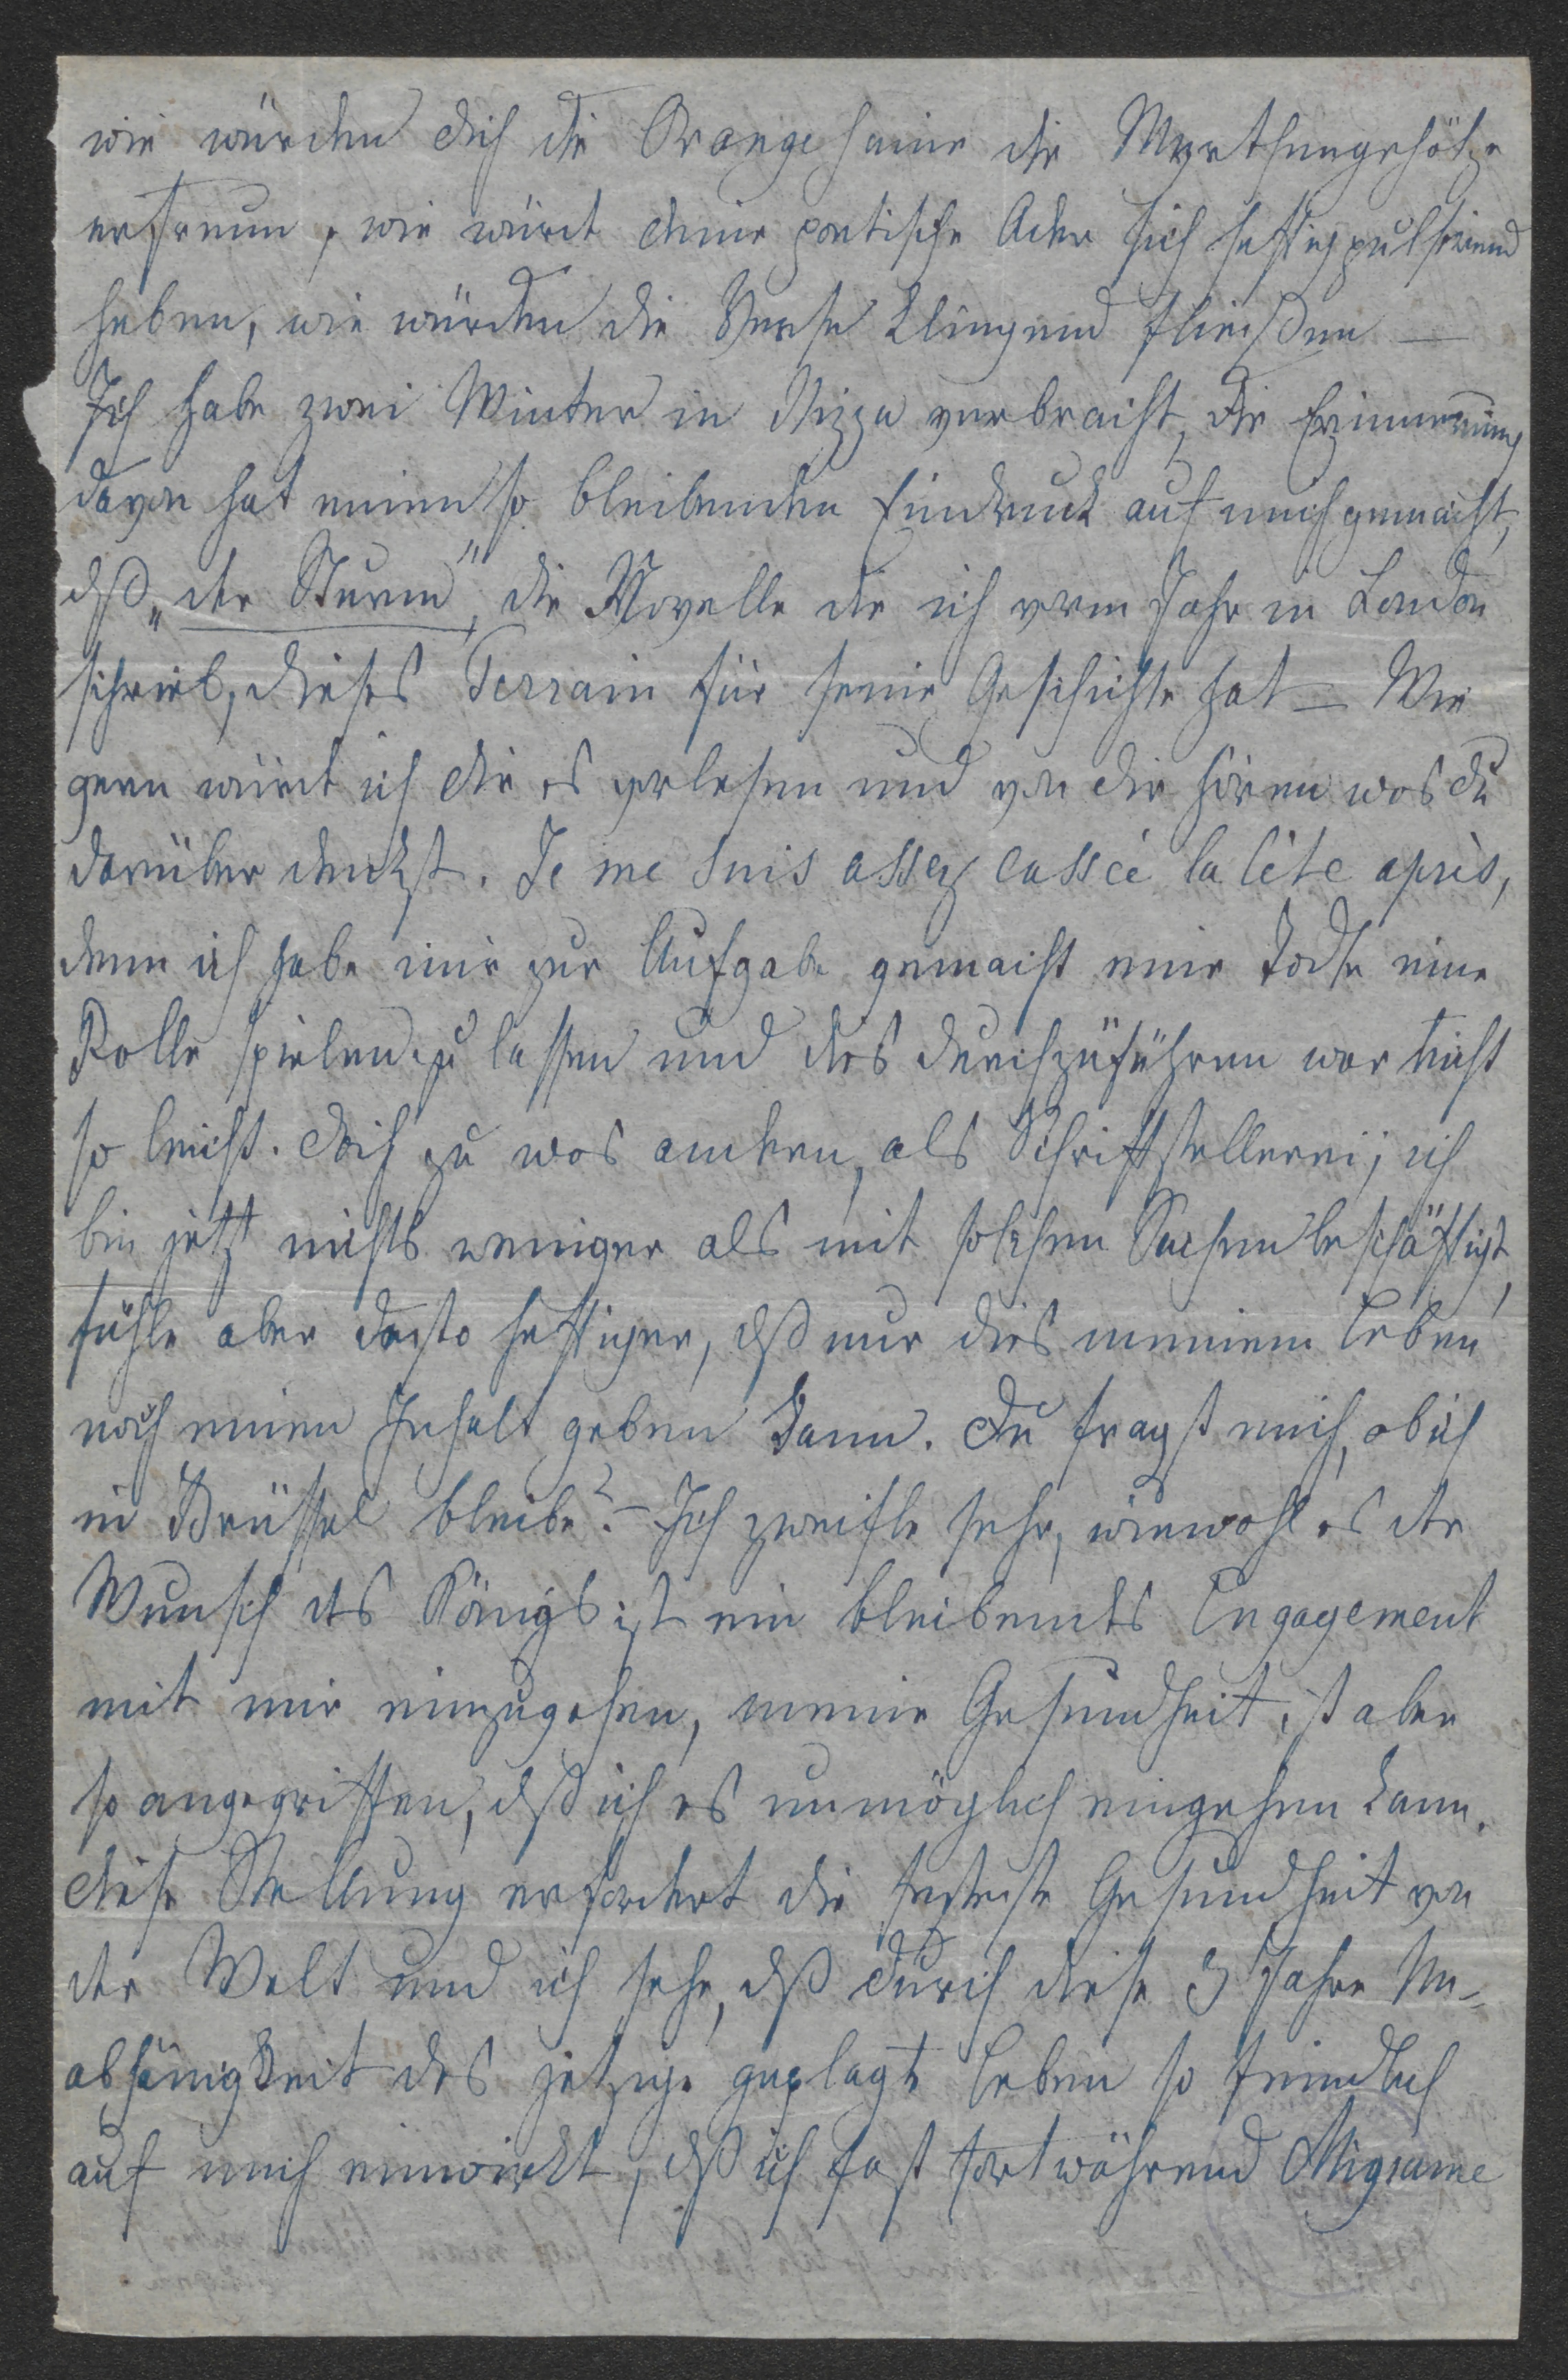 wie würden dich die Orangehaine die Myrthengehölze
erfreun, wie würde deine poetische Ader sich heftig pulsirend
heben, wie würden die Verse klingend fließen —
Ich habe zwei Winter in Nizza verbracht, die Erinnerung
davon hat einen so bleibenden Eindruck auf mich gemacht,
dß „der Sturm", die Novelle die ich vorm Jahr in London
schrieb, dieses Terrain für seine Geschichte hat — Wie
gern würd ich dir es vorlesen und von dir hören was du
darüber denkst. Je me suis assez cassé la tête après,
denn ich habe mir zur Aufgabe gemacht eine Todte eine
Rolle spielen zu lassen und dies durchzuführen war nicht
so leicht. Doch zu was andren, als Schriftstellerei; ich
bin jetzt nichts weniger als mit solchen Sachen beschäftigt,
fühle aber desto heftiger, dß nur dies meinem Leben
noch einen Inhalt geben kann. Du fragst mich, ob ich
in Brüssel bleibe? — Ich zweifle sehr, wiewohl es der
Wunsch des Königs ist ein bleibendes Engagement
mit mir einzugehen, meine Gesundheit ist aber
so angegriffen, dß ich es unmöglich eingehen kann.
Diese Stellung erfordert die festeste Gesundheit von
der Welt und ich sehe, dß durch diese 3 Jahre Un-
abhänigkeit das jetzige geplagte Leben so feindlich
auf mich einwirkt, dß ich fast fortwährend Migraine